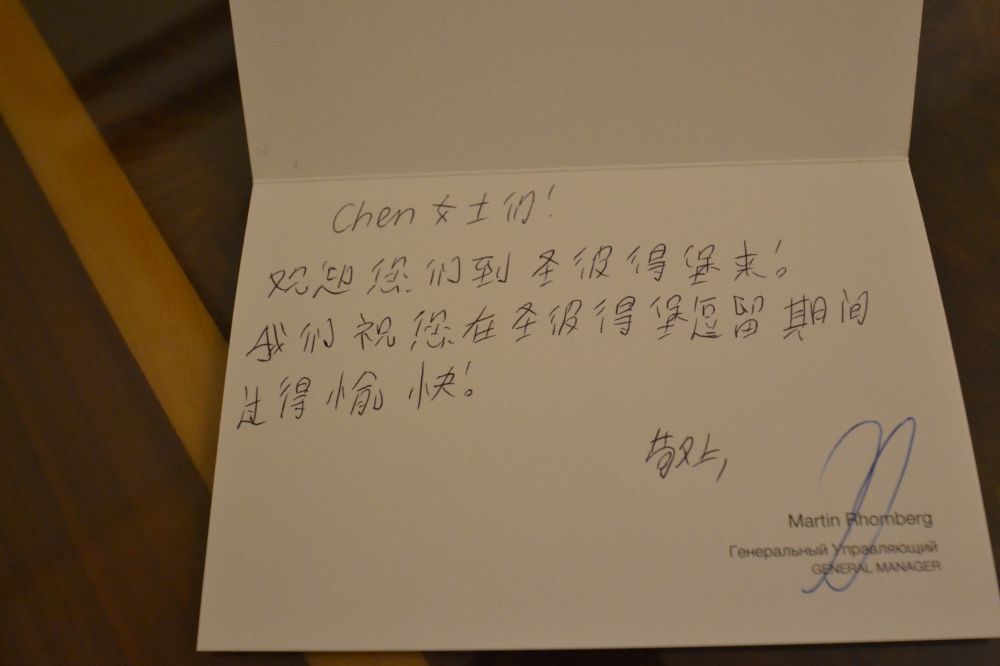 Chen 女士们!
欢迎您们到圣彼得堡来!
我们祝您在圣彼得堡逗留期间
过得愉快!
敬上,
Martin Rhomberg
Генеральный Управляющий
GENERAL MANAGER